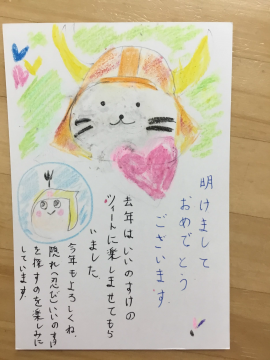 明けまして
おめでとう
ございます
去年はいいのすけの
ツィートに楽しませてもら
いました。
今年もよろしくね。
隠れ(忍び)いいのすけ
を探すのを楽しみに
しています。